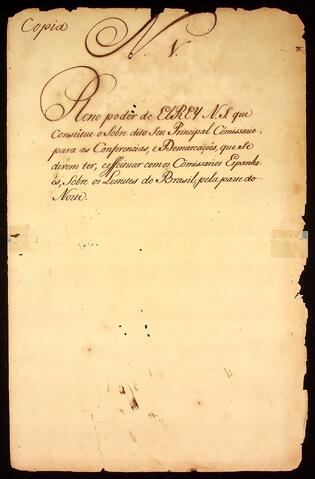 Copia
N. V.
Pleno poder de ElREY N. S. que
Constitue o Sobre dito Seu Principal Cõmissario
para as Conferencias, e Demarcações, que Se
direm ter, e effeituar com os Cõmissarios Espanho
es, Sobre os Lemites do Brasil, pela parte do
Norte.